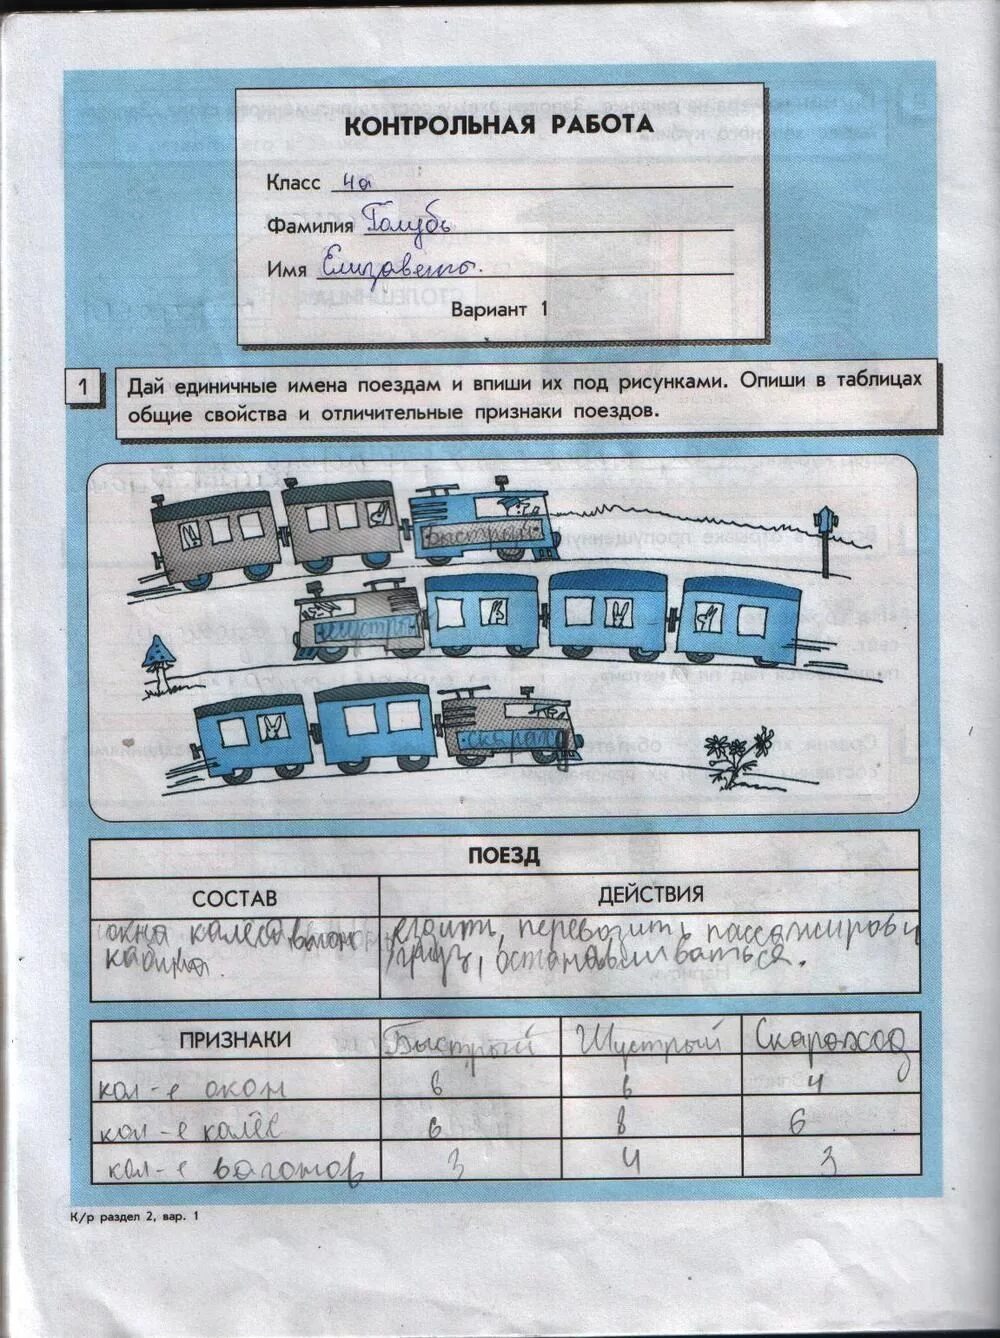 КОНТРОЛЬНАЯ РАБОТА
Класс 4а
Фамилия Голубь
Имя Елизавета.
Вариант 1
1
Дай единичные имена поездам и впиши их под рисунками. Опиши в таблицах
общие свойства и отличительные признаки поездов.
быстрый
шустрый
скароход
ПОЕЗД
СОСТАВ ДЕЙСТВИЯ
окна колёса вагон ездить, перевозить пассажиров и
кабина груз, останавливаться.
ПРИЗНАКИ Быстрый Шустрый Скароход
кол-е окон 6 6 4
кол-е колёс 6 8 6
кол-е вагонов 3 4 3
К/р раздел 2, вар. 1